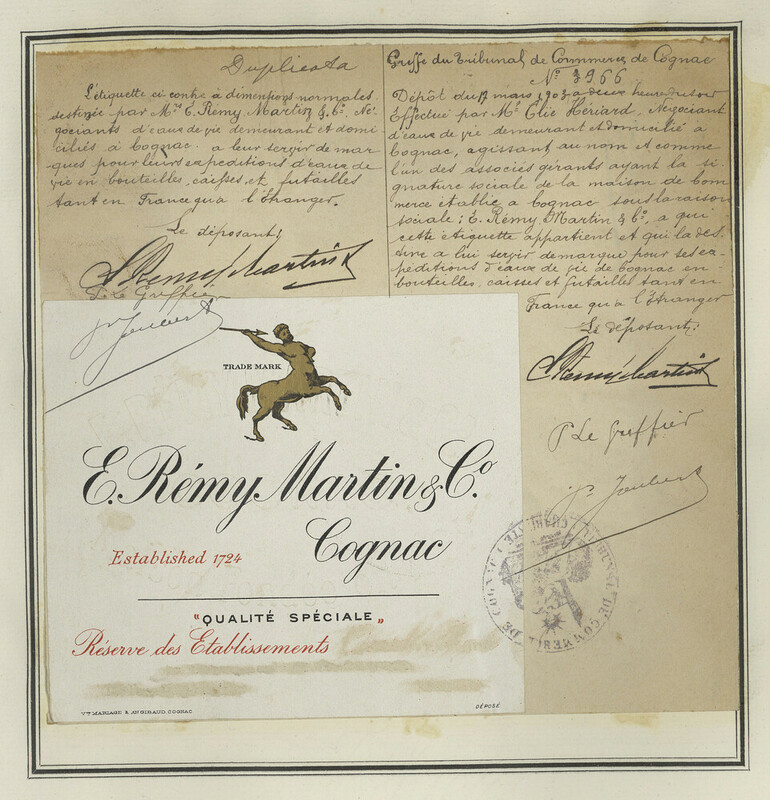 Duplicata
L'étiquette ci contre à dimensions normales
destinée par Mrs E. Rémy Martin & Co, Né-
gociants d'eaux de vie demeurant et domi-
ciliés à Cognac à leur servir de mar-
ques pour leurs expéditions d'eaux de
vie en bouteilles, caisses, et futailles
tant en France qu'à l'Étranger.
Le déposant:
E. Remy Martin & Co
P. Le Greffier
Joubert
Greffe du Tribunal de Commerce de Cognac
No 3966
Dépôt du 17 mars 1903 à deux heures du soir
Effectué par Mr Elie Hériard, Négociant
d'eaux de vie demeurant et domicilié à
Cognac, agissant au nom et comme
l'un des associés gérants ayant la si-
gnature sociale de la maison de Com-
merce établie à Cognac sous la raison
sociale: E. Rémy Martin & Co, à qui
cette étiquette appartient et qui la des-
tine à lui servir de marque pour ses ex-
péditions d'eaux de vie de Cognac en
bouteilles, caisses et futailles tant en
France qu'à l'Étranger
Le déposant:
E. Remy Martin & Co
P Le Greffier
Joubert
TRIBUNAL DE COMMERCE DE COGNAC
TRADE MARK
E. Rémy Martin & Co.
Cognac
Established 1724
"QUALITÉ SPÉCIALE"
Réserve des Etablissements
DÉPOSÉ